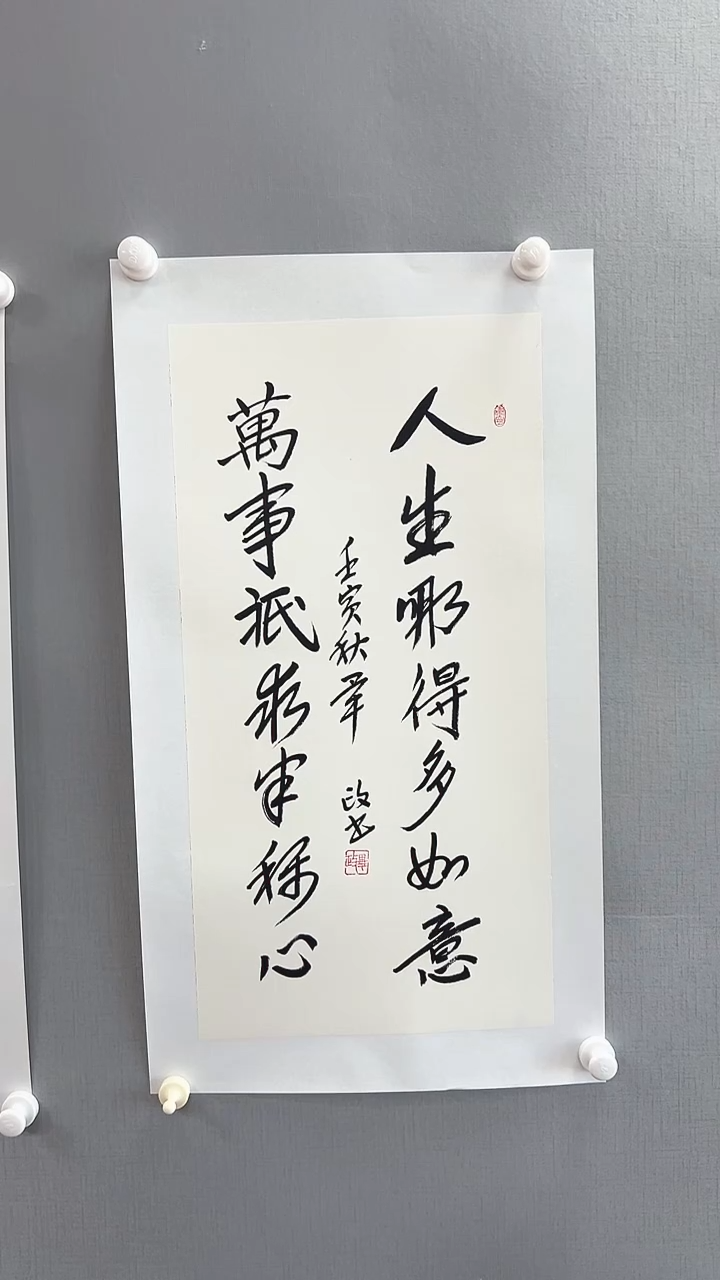 人生哪得多如意
萬事祇求半称心
壬寅秋 政书